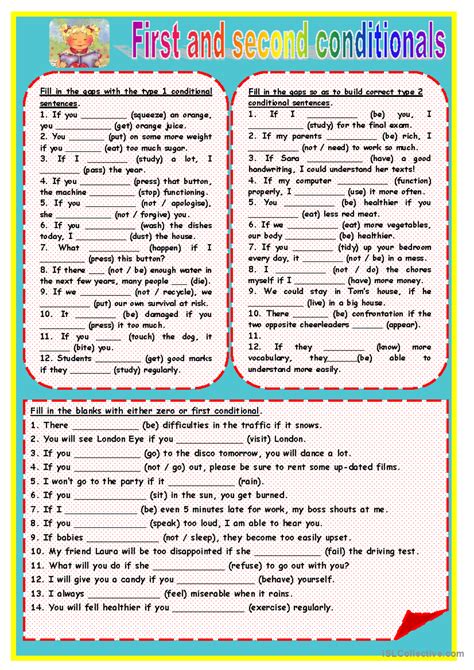 First and second conditionals
Fill in the gaps with the type 1 conditional
sentences.
1. If you ______ (squeeze) an orange,
you ______ (get) orange juice.
2. You ______ (put) on some more weight
if you ______ (eat) too much sugar.
3. If I ______ (study) a lot, I
______ (pass) the year.
4. If you ______ (press) that button,
the machine ______ (stop) functioning.
5. If you ______ (not / apologise),
she ______ (not / forgive) you.
6. If you ______ (wash) the dishes
today, I ______ (dust) the house.
7. What ______ (happen) if I
______ (press) this button?
8. If there ______ (not / be) enough water in
the next few years, many people ____ (die).
9. If we ______ (not / recycle), we
______ (put) our own survival at risk.
10. It ______ (be) damaged if you
______ (press) it too much.
11. If you ______ (touch) the dog, it
______ (bite) you.
12. Students ______ (get) good marks
if they ______ (study) regularly.
Fill in the gaps so as to build correct type 2
conditional sentences.
1. If I ______ (be) you, I
______ (study) for the final exam.
2. If my parents ______ (be) rich, I
______ (not / need) to work so much.
3. If Sara ______ (have) a good
handwriting, I could understand her texts!
4. If my computer ______ (function)
properly, I ______ (use) it more often.
5. You ______ (be) healthier if you
______ (eat) less red meat.
6. If we ______ (eat) more vegetables,
our body ______ (be) healthier.
7. If you ______ (tidy) up your bedroom
every day, it ______ (not / be) in a mess.
8. I ______ (not / do) the chores
myself if I ______ (have) more money.
9. We could stay in Tom's house, if he
______ (live) in a big house.
10. There ______ (be) confrontation if the
two opposite cheerleaders ______ (appear).
11.
12. If they ______ (know) more
vocabulary, they______(be) able to
understand more easily.
Fill in the blanks with either zero or first conditional.
1. There ______ (be) difficulties in the traffic if it snows.
2. You will see London Eye if you ______ (visit) London.
3. If you ______ (go) to the disco tomorrow, you will dance a lot.
4. If you ______ (not / go) out, please be sure to rent some up-dated films.
5. I won't go to the party if it ______ (rain).
6. If you ______ (sit) in the sun, you get burned.
7. If I ______ (be) even 5 minutes late for work, my boss shouts at me.
8. If you ______ (speak) too loud, I am able to hear you.
9. If babies ______ (not / sleep), they become too easily upset.
10. My friend Laura will be too disappointed if she ______ (fail) the driving test.
11. What will you do if she ______ (refuse) to go out with you?
12. I will give you a candy if you ______ (behave) yourself.
13. I always ______ (feel) miserable when it rains.
14. You will fell healthier if you ______ (exercise) regularly.
iSLCollective.com